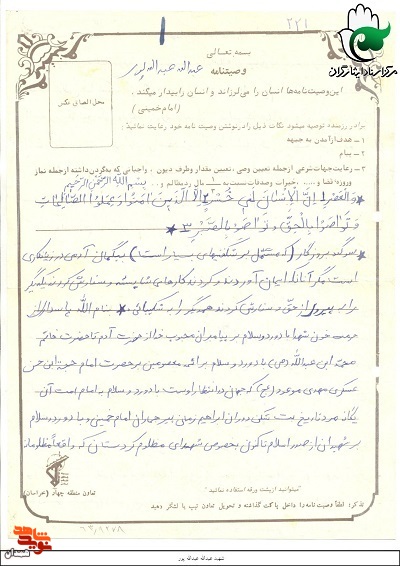 ۲۲۱
مرکز اسناد ایثارگران
بسمه تعالی
وصیتنامه
عبدالله عبداله پور
محل الصاق عکس
این وصیت‌نامه‌ها انسان را می‌لرزاند و انسان را بیدار میکند.
(امام خمینی)
برادر رزمنده توصیه میشود نکات ذیل را در نوشتن وصیت نامه خود رعایت نمائید:
۱ـ هدف از آمدن به جبهه
۲ـ پیام
۳ـ رعایت جهات شرعی از جمله تعیین وصی، تعیین مقدار و ظرف دیون، واجباتی که به گردن داشته از جمله نماز
و روزه قضا و ... خیرات و صدقات نسبت به ۱ مال
بسم الله الرحمن الرحیم
والعصر ان الانسان لفی خسر الا الذین امنوا و عملوا الصالحات
و تواصوا بالحق و تواصوا بالصبر
سوگند بروزگار (که مشتمل بر شگفتیهای بسیار است) بیگمان آدمی در زیانکاری
است مگر آنانکه ایمان آوردند و کردند کارهای شایسته و سفارش کردند یکدیگر
را به پیروی از حق و سفارش کردند همدیگر را به شکیبائی بنام الله پاسدار
حرمت خون شهدا با درود و سلام بر پیامبران محبوب خدا از حضرت آدم تا حضرت خاتم
محمد ابن عبدالله (ص) با درود و سلام بر ائمه معصومین بر حضرت امام حجت ابن حسن
عسکری مهدی موعود (عج) که جهان در انتظار اوست با درود و سلام به امام امت آن
یگانه مرد تاریخ بت شکن دوران ابراهیم زمان پیر جماران امام خمینی و با درود و سلام
بر شهیدان از صدر اسلام تا کنون بخصوص شهدای مظلوم کردستان که واقعاً مظلومانه
میتوانید از پشت ورقه استفاده نمائید
تعاون منطقه جهاد (خراسان)
تذکر: لطفاً وصیت نامه را داخل پاکت گذاشته و تحویل تعاون تیپ یا لشگر دهید
نوید شاهد
همدان
شهید عبدالله عبدالله پور